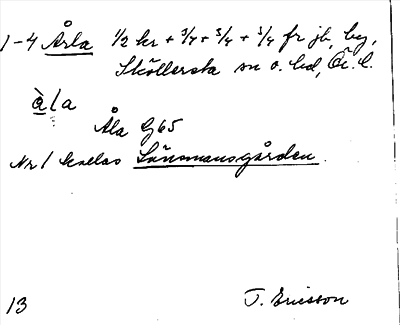 1-4 Årla ½ kr + 3/4 + 3/4 + 3/4 fr jb, by,
Sköllersta sn o. hd, Ör. l.
àla
Åla G65
Nr 1 kallas Länsmansgården.
13 T. Ericsson